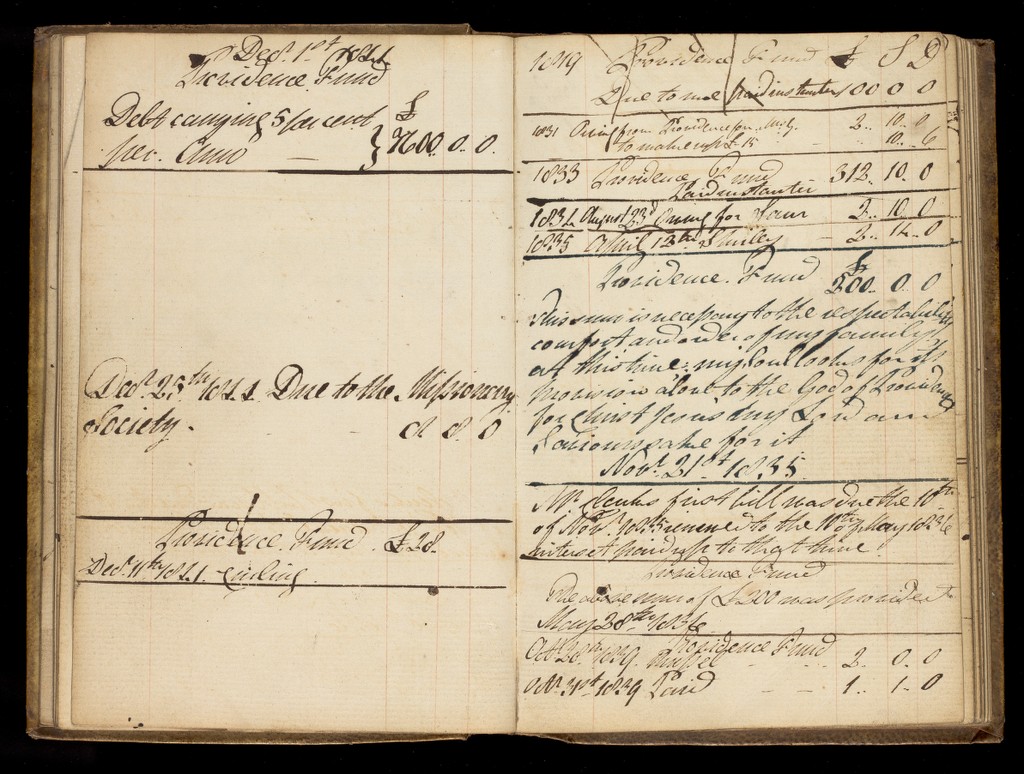 Decr. 1st 1821
Providence Fund
£
Debt carrying 5 per cent
per. Ann — 7600. 0. 0.
Decr. 25th 1821 Due to the Missionary
Society. — 8. 0
Providence Fund £28.
Decr. 11th 1821.
1819 Providence Fund £ S D
Due to me paid instanter 100 0 0
1831 Owing from Providence for 2.. 10.. 0
to make up £ 15 - - 10.. 6
1833 Providence Fund 312. 10. 0
Paid instanter
1834 August 23d Owing for 2.. 10. 0
1835 April 12th — 2.. 12.. 0
Providence. Fund £200.. 0. 0
This sum is necessary to the respectability
comfort and order of my family
at this time: my soul looks for its
provision alone to the God of Providence
for Christ Jesus my Lord and
Saviours sake for it
Novr. 21st 1835
Mr. first bill was due the 10th
of Novr. 1835 renewed to the 10th of May 1836
interest paid up to that time
Providence Fund
The above sum of £200 was provided
May 28th 1836
Providence Fund
Oct. 20th 1839. - - 2. 0. 0
Octr. 31st 1839 Paid - - 1. 1. 0